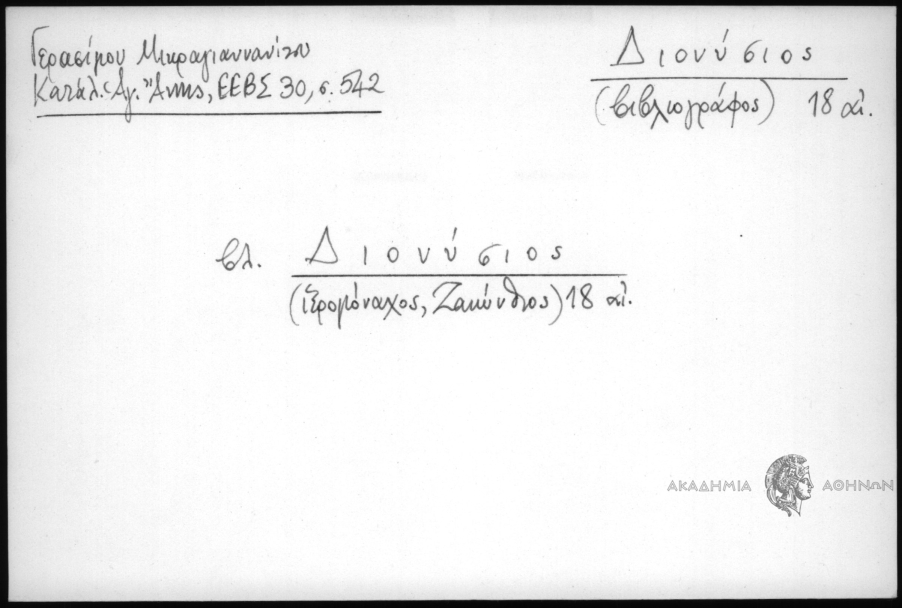 Γερασίμου Μικραγιαννανίτου
Κατάλ. Ἁγ. Ἄννης, ΕΕΒΣ 30, σ. 542
Διονύσιος
(βιβλιογράφος) 18 αἰ.
βλ. Διονύσιος
(ἱερομόναχος, Ζακύνθιος) 18 αἰ.
ΑΚΑΔΗΜΙΑ ΑΘΗΝΩΝ